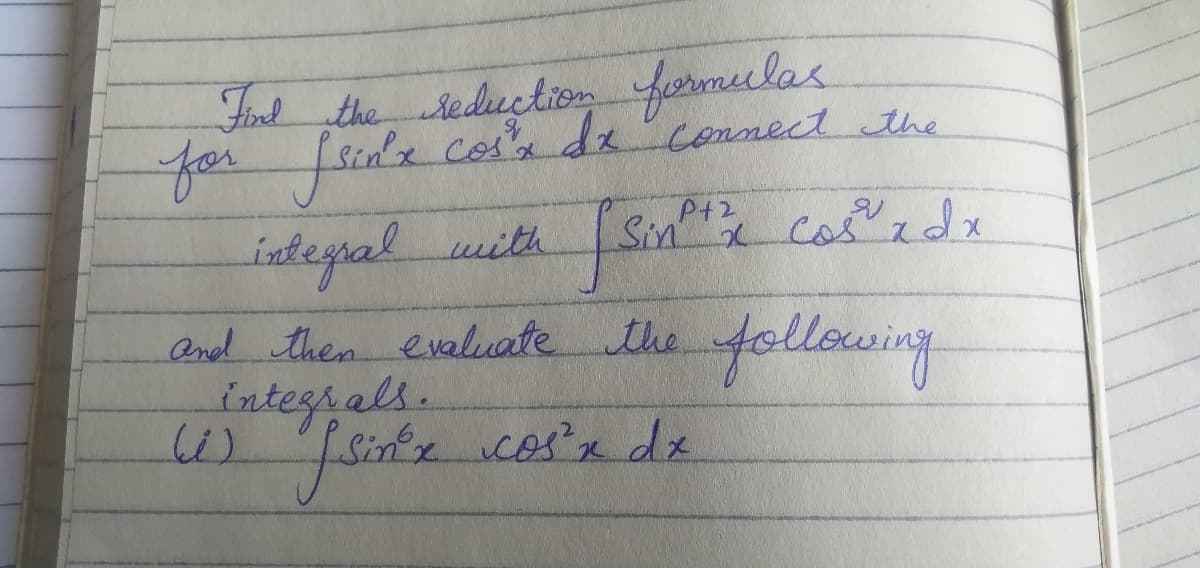 Find the reduction formulas
for ∫ sin^p x cos^q x dx connect the
integral with ∫ Sin^{p+2} x cos^q x dx
and then evaluate the following
integrals.
(i) ∫ sin^6 x cos^2 x dx